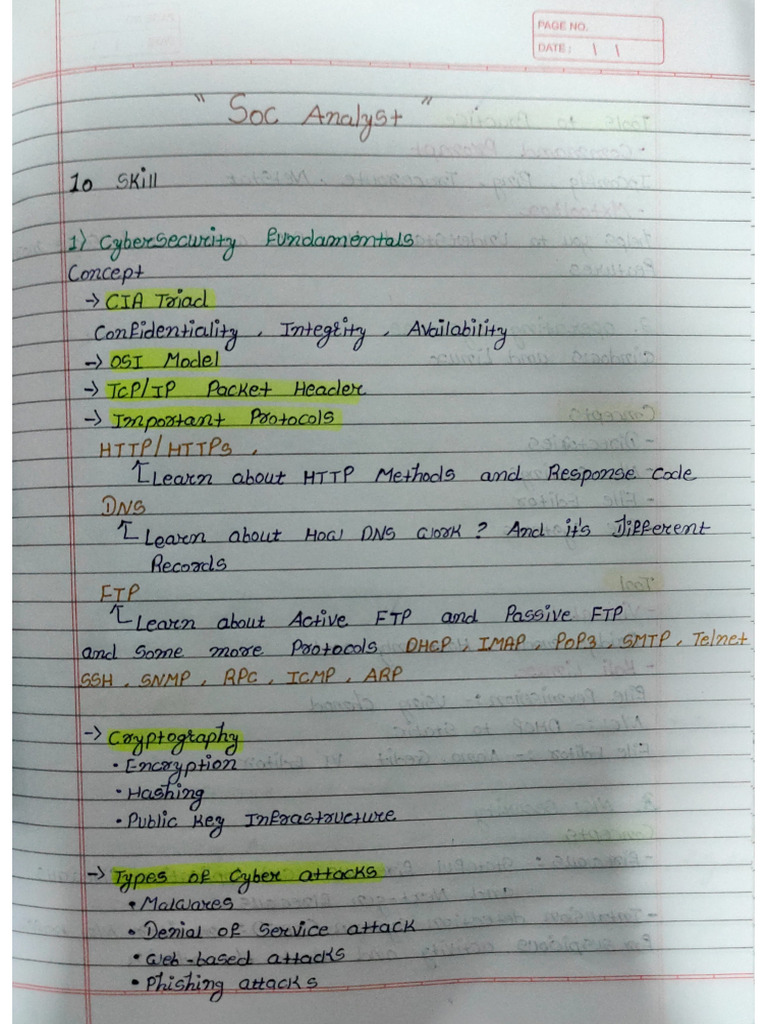 PAGE NO.
DATE: / /
" Soc Analyst "
10 Skill
1) Cybersecurity Fundamentals
Concept
→ CIA Triad
Confidentiality, Integrity, Availability
→ OSI Model
→ TCP/IP Packet Header
→ Important Protocols
HTTP/HTTPs,
Learn about HTTP Methods and Response Code
DNS
Learn about How DNS work? And it's Different
Records
FTP
Learn about Active FTP and Passive FTP
and some more Protocols DHCP, IMAP, POP3, SMTP, Telnet
SSH, SNMP, RPC, ICMP, ARP
→ Cryptography
• Encryption
• Hashing
• Public Key Infrastructure
→ Types of Cyber attacks
• Malwares
• Denial of Service attack
• Web-based attacks
• Phishing attacks